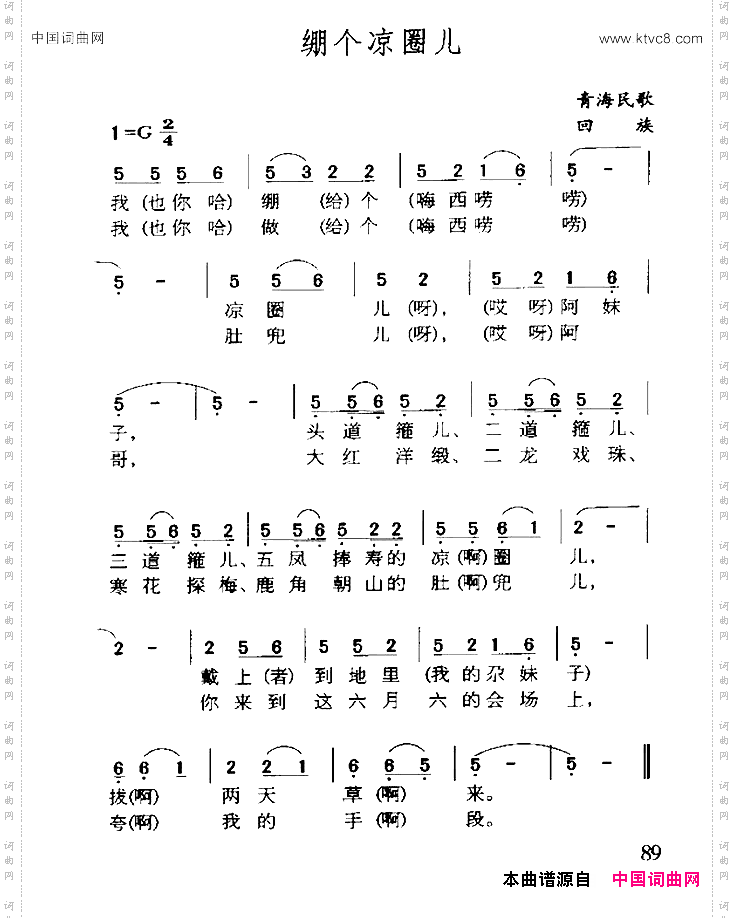 中国词曲网 绷个凉圈儿 www.ktvc8.com
青海民歌
1=G 2/4 回 族
5 5 5 6 | 5 5 3 2 2 | 5 2 1 6 | 5 -
我(也你哈) 绷 (给)个 (嗨西唠 唠)
我(也你哈) 做 (给)个 (嗨西唠 唠)
5 - | 5 5 6 | 5 2 | 5 2 1 6
凉圈 儿(呀), (哎呀)阿妹
肚兜 儿(呀), (哎呀)阿
5 - | 5 - | 5 5 6 5 2 | 5 5 6 5 2
子, 头道箍儿、二道箍儿、
哥, 大红洋缎、二龙戏珠、
5 5 6 5 2 | 5 5 6 5 2 2 | 5 5 6 1 | 2 -
三道箍儿、五凤捧寿的凉(啊)圈 儿,
寒花探梅、鹿角朝山的肚(啊)兜 儿,
2 - | 2 5 6 | 5 5 2 | 5 2 1 6 | 5 -
戴上(者)到地里(我的尕妹子)
你来到这六月六的会场上,
6 6 1 | 2 2 1 | 6 6 5 | 5 - | 5 - ‖
拔(啊) 两天 草(啊) 来。
夸(啊) 我的 手(啊) 段。
89
本曲谱源自 中国词曲网